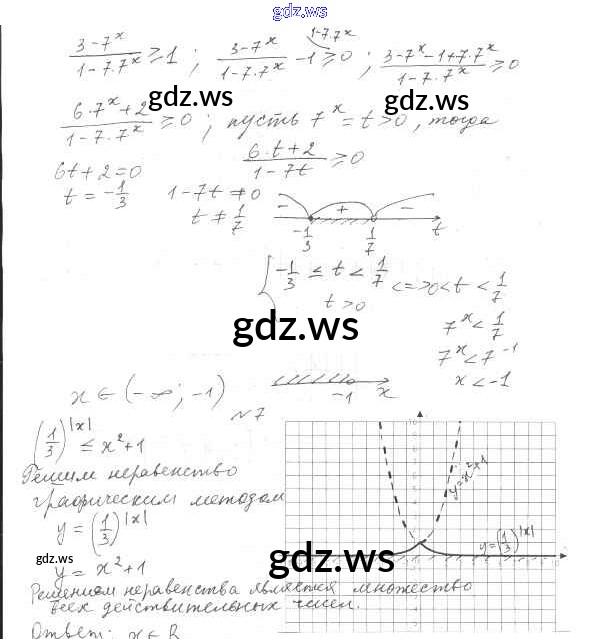 gdz.ws
(3-7^x)/(1-7·7^x) ≥ 1 ; (3-7^x)/(1-7·7^x) - 1 ≥ 0 ; (3-7^x-1+7·7^x)/(1-7·7^x) ≥ 0
1-7·7^x
gdz.ws gdz.ws
(6·7^x+2)/(1-7·7^x) ≥ 0 ; пусть 7^x = t > 0, тогда
6t+2=0 (6·t+2)/(1-7t) ≥ 0
t = -1/3 1-7t ≠ 0 - + -
t ≠ 1/7 -1/3 1/7 t
{ -1/3 ≤ t < 1/7 <=> 0<t<1/7
t>0
gdz.ws
7^x < 1/7
7^x < 7^-1
x < -1
x ∈ (-∞; -1) -1 x
N7
(1/3)^|x| ≤ x²+1
Решим неравенство
графическим методом
y = (1/3)^|x|
y = x²+1
y = x²+1
y = (1/3)^|x|
gdz.ws gdz.ws
Решением неравенства является множество
всех действительных чисел.
Ответ: x ∈ R